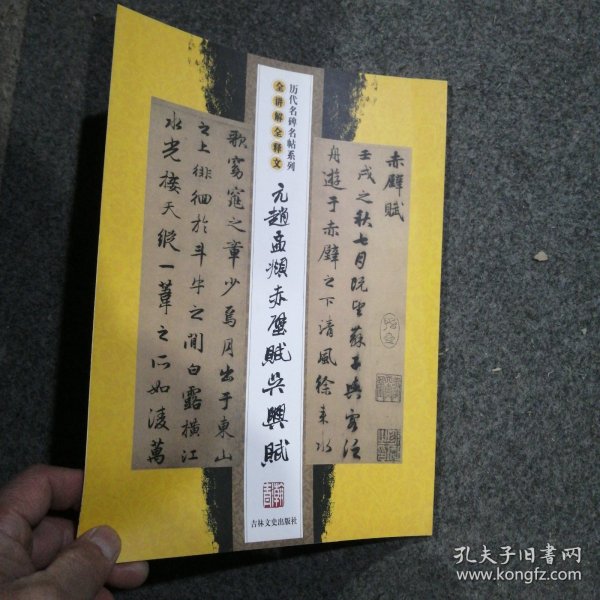 历代名碑名帖系列
全讲解全释文
元趙孟頫赤壁賦吳興賦
吉林文史出版社
赤壁賦
壬戌之秋七月既望蘇子與客泛
舟遊于赤壁之下清風徐來水
歌窈窕之章少焉月出于東山
之上徘徊於斗牛之間白露橫江
水光接天縱一葦之所如凌萬
孔夫子旧书网
www.kongfz.com